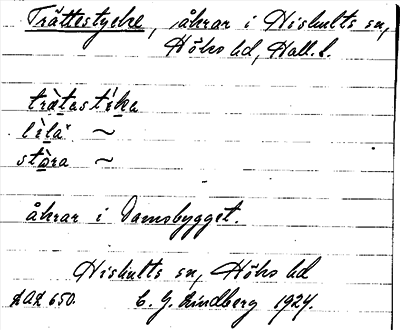 Trättestycke, åkrar i Hishults sn,
Höks hd, Hall. l.
trätastika
lela ~
stora ~
åkrar i Damsbygget.
Hishults sn, Höks hd
650. C. G. Lindberg 1924.